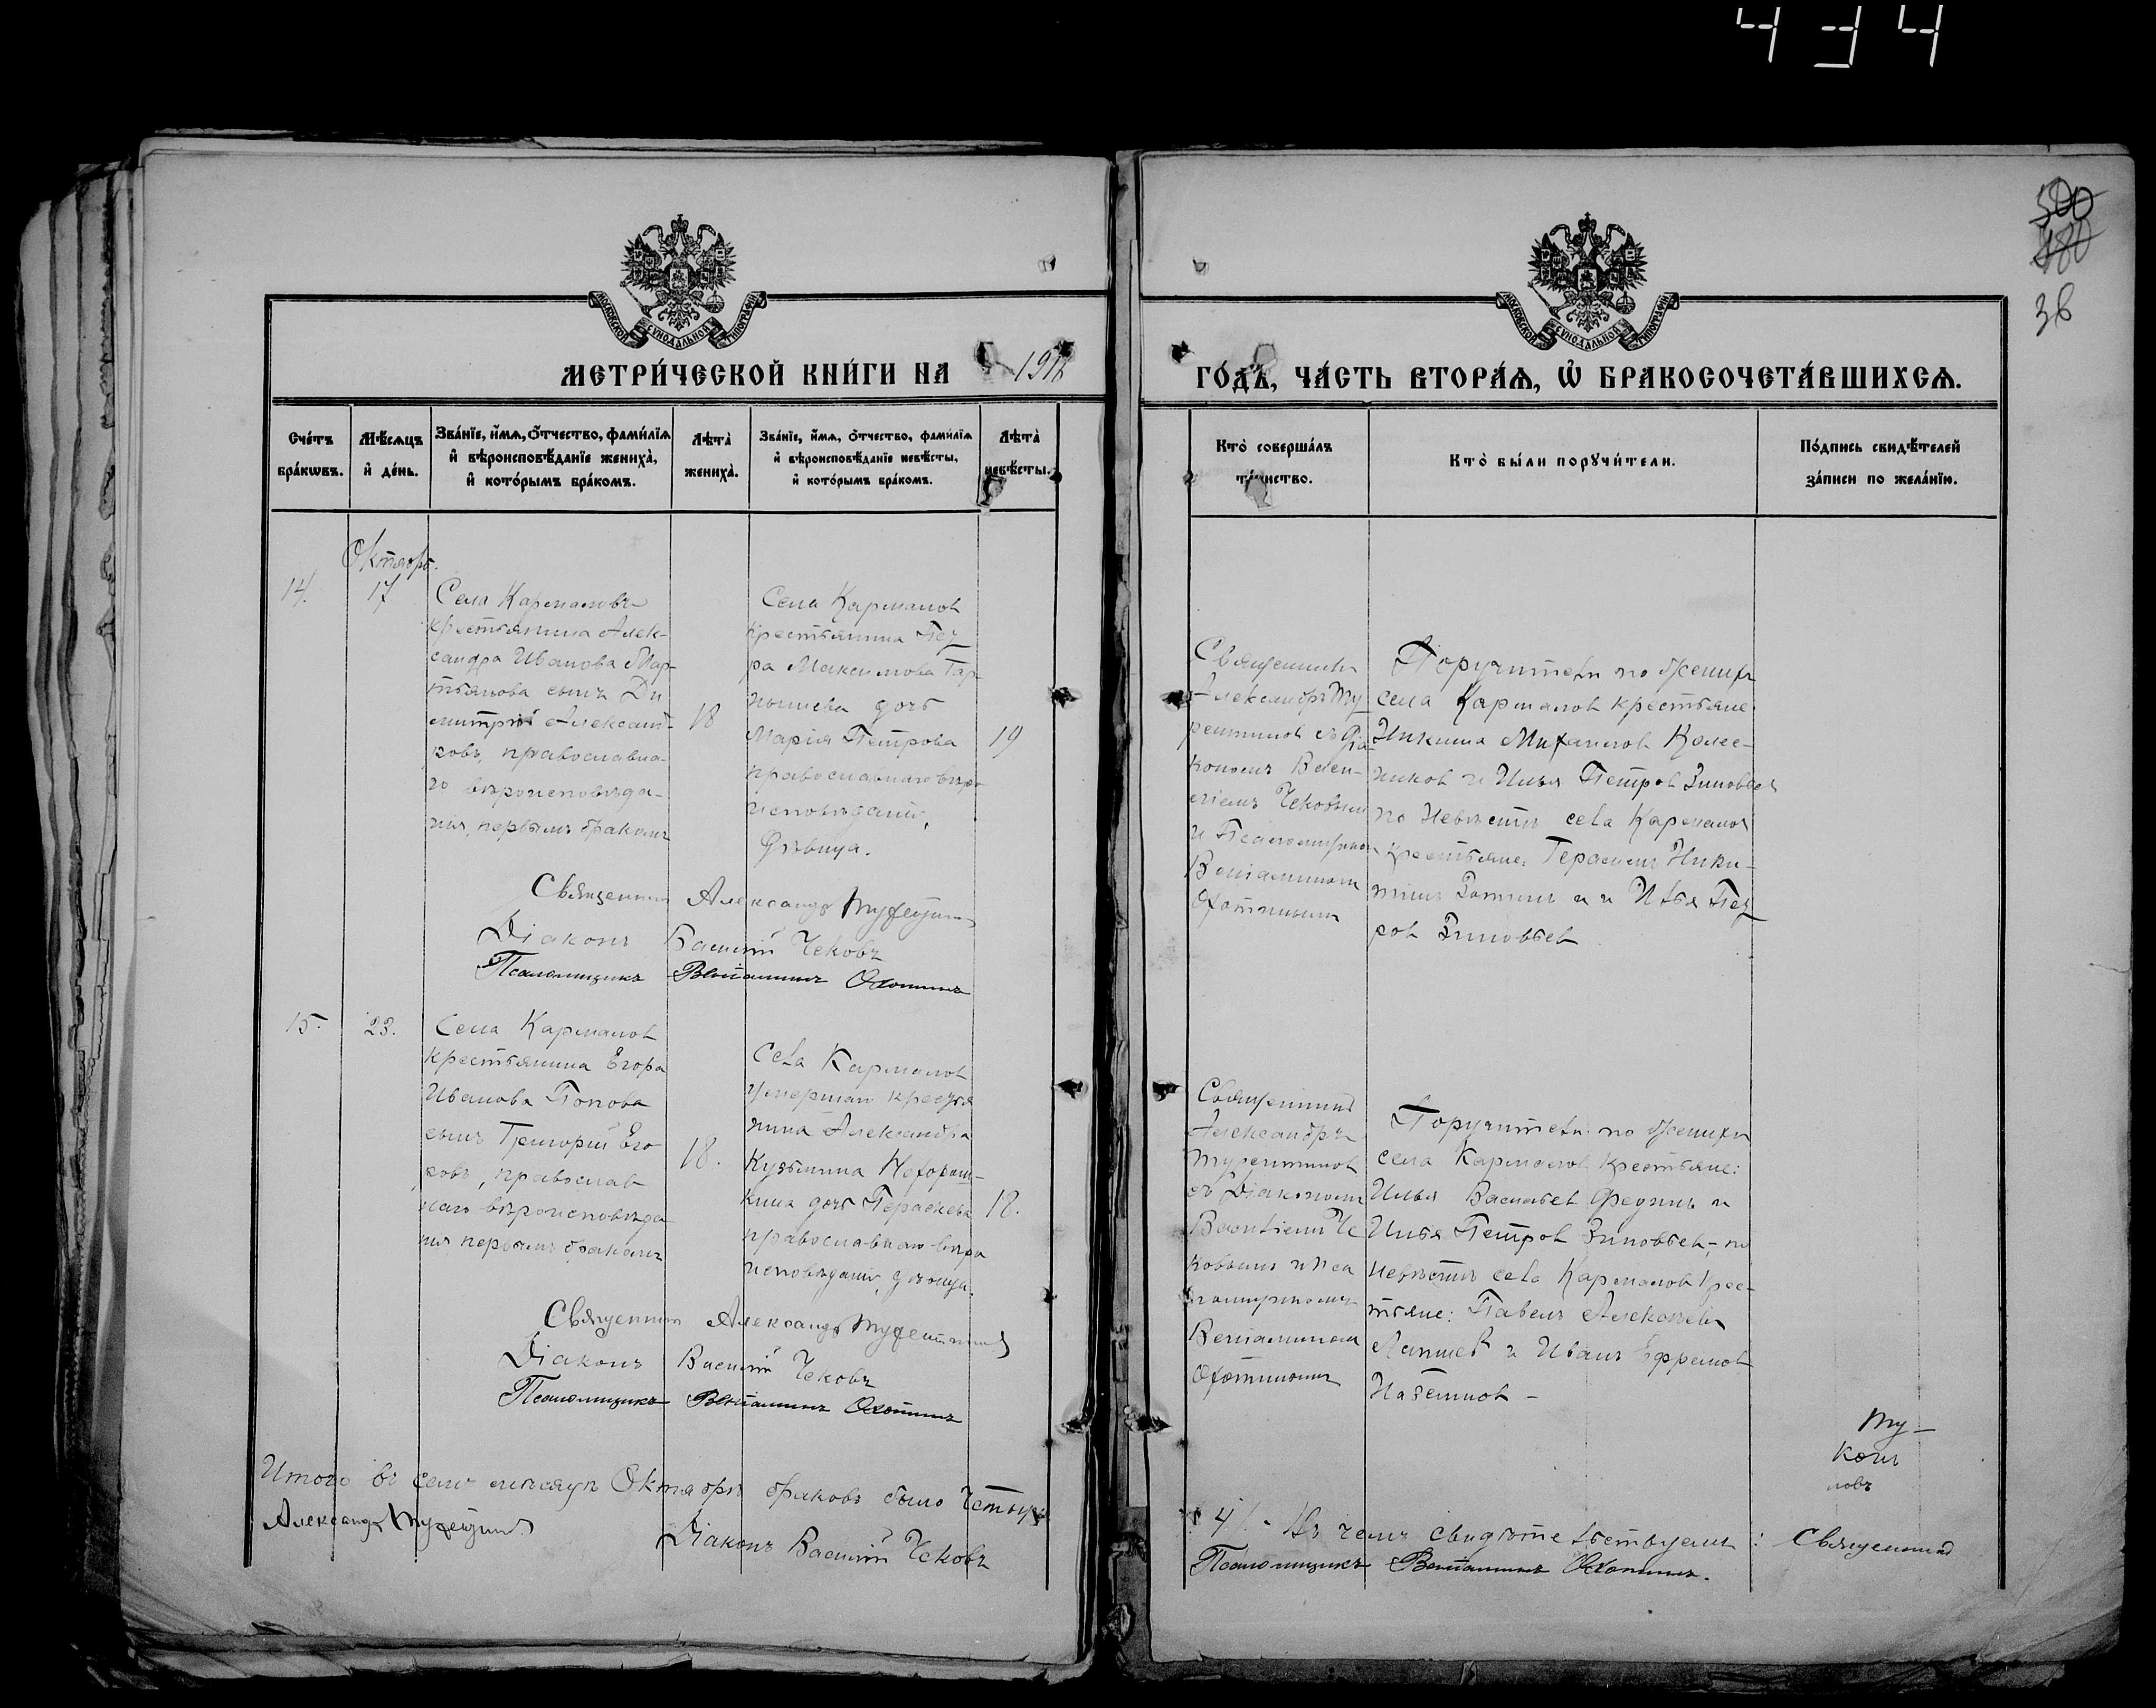 434
500
480
38
МОСКОВСКОЙ СУНОДАЛЬНОЙ ТИПОГРАФІИ
МОСКОВСКОЙ СУНОДАЛЬНОЙ ТИПОГРАФІИ
МЕТРИ́ЧЕСКОЙ КНИ́ГИ НА
ГО́ДЪ, ЧА́СТЬ ВТОРА́Ѧ, Ѿ БРАКОСОЧЕТА́ВШИХСѦ.
Сче́тъ бра́кѡвъ.
Мѣ́сѧцъ и҆ де́нь.
Зва́нїе, и҆́мѧ, ѻ҆́тчество, фами́лїѧ и҆ вѣроисповѣ́данїе жениха̀, и҆ кото́рымъ бра́комъ.
Лѣта̀ жениха̀.
Зва́нїе, и҆́мѧ, ѻ҆́тчество, фами́лїѧ и҆ вѣроисповѣ́данїе невѣ́сты, и҆ кото́рымъ бра́комъ.
Лѣта̀ невѣ́сты.
Кто̀ соверша́лъ та́инство.
Кто̀ бы́ли порꙋчи́тели.
По́дпись свидѣ́телей за́писи по жела́нїю.
Октябрь.
14.
17
Села Кармаловъ
крестьянина Алек-
сандра Иванова Мар-
тьянова сынъ Ди
митрій Александ-
ровъ, православна-
го вѣроисповѣда-
нія, первымъ бракомъ
18
Села Кармалов
крестьянина Пет
ра Максимова Гар
нышева дочь
Марія Петрова
православнаго вѣро
исповѣданія,
дѣвица.
19
Священник
Александръ Ту
рентинов съ Діа
кономъ Васи-
ліемъ Чековым
и Псаломщиком
Веніамином
Охотиным
Поручители по женихѣ
села Кармалов крестьяне:
Никита Михаилов Колес-
ников и Илья Петров Зиновьев
по Невѣстѣ села Кармалов
крестьяне: Герасим Ники-
тин Зотин и и Илья Пет
ров Зиновьев
Священник Александр Турентинов
Діаконъ Василій Чековъ
Псаломщикъ Веніаминъ Охотинъ
15.
23.
Села Кармалов
крестьянина Егора
Иванова Попова
сынъ Григорій Его
ровъ, православ
наго вѣроисповѣда
нія первымъ бракомъ
18.
Села Кармалов
умершаго крестья
нина Александра
Кузьмина
дочь
православнаго вѣро
исповѣданія, дѣвица.
18.
Священник
Александръ
Турентинов
съ Діаконом
Василіем Че
ковымъ и Пса
ломщикомъ
Веніамином
Охотиным
Поручители по женихѣ
села Кармалов крестьяне:
Илья Васильев Федин и
Илья Петров Зиновьев, по
невѣстѣ села Кармалов крес-
тьяне: Павелъ Алексѣев
Лапшев и Иван Ефремов
Наземнов -
Священник Александр Турентинов
Діаконъ Василій Чековъ
Псаломщикъ Веніаминъ Охотинъ
Итого въ семъ мѣсяцѣ Октябрѣ браковъ было Четыре
/ 4 /. - Въ чемъ свидѣтельствуемъ: Священник
Александр Турентинов
Діаконъ Василій Чековъ
Псаломщикъ Веніаминъ Охотинъ.